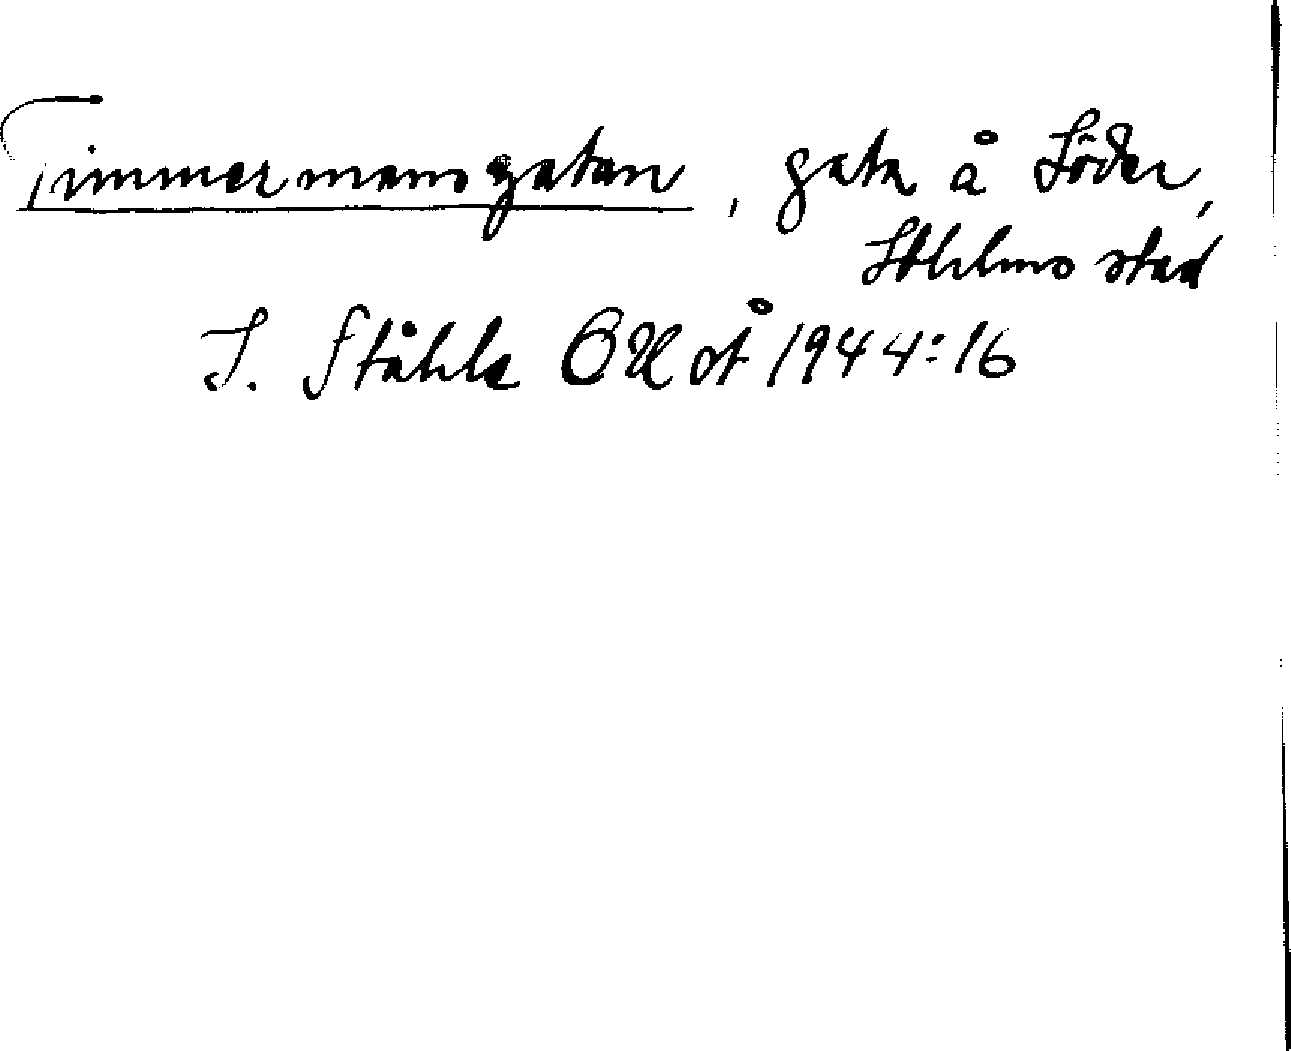 Timmermansgatan, gata å Söder,
Sthlms stad
I. Ståhle OUoÅ 1944:16